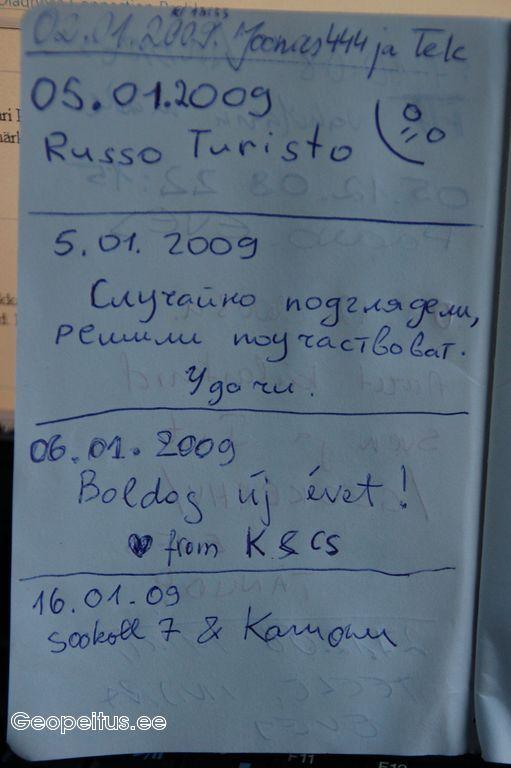 02.01.2009. Joonas444 ja Tek
05.01.2009
Russo Turisto
5.01. 2009
Случайно подглядели,
решили поучаствоват.
Удачи.
06.01. 2009
Boldog új évet!
from K & CS
16.01.09
sookoll 7 &
Geopeitus.ee